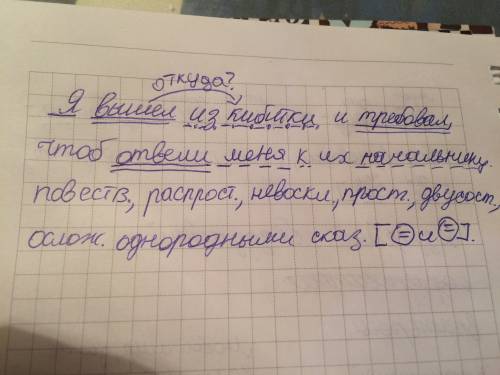 откуда?
Я вышел из кибитки и требовал,
чтоб отвели меня к их начальнику.
повеств., распрост., невоскл., прост., двусост.,
ослож. однородными сказ. [(=) и (=)].